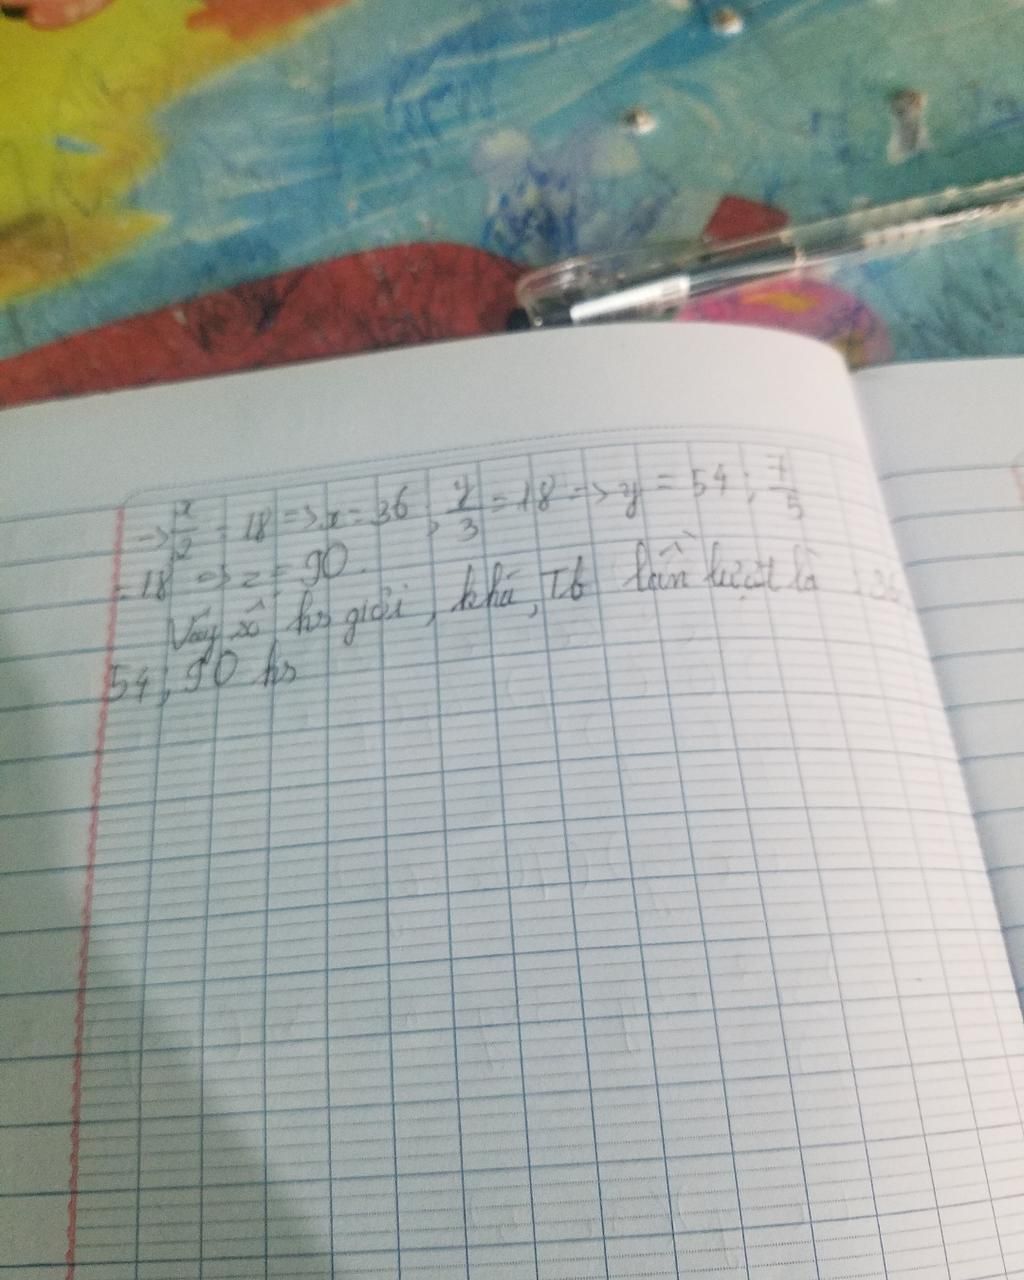 → x/2 = 18 => x = 36 ; y/3 = 18 => y = 54 ; z/5
= 18 => z = 90.
Vậy số hs giỏi, khá, Tb lần lượt là : 36,
54, 90 hs